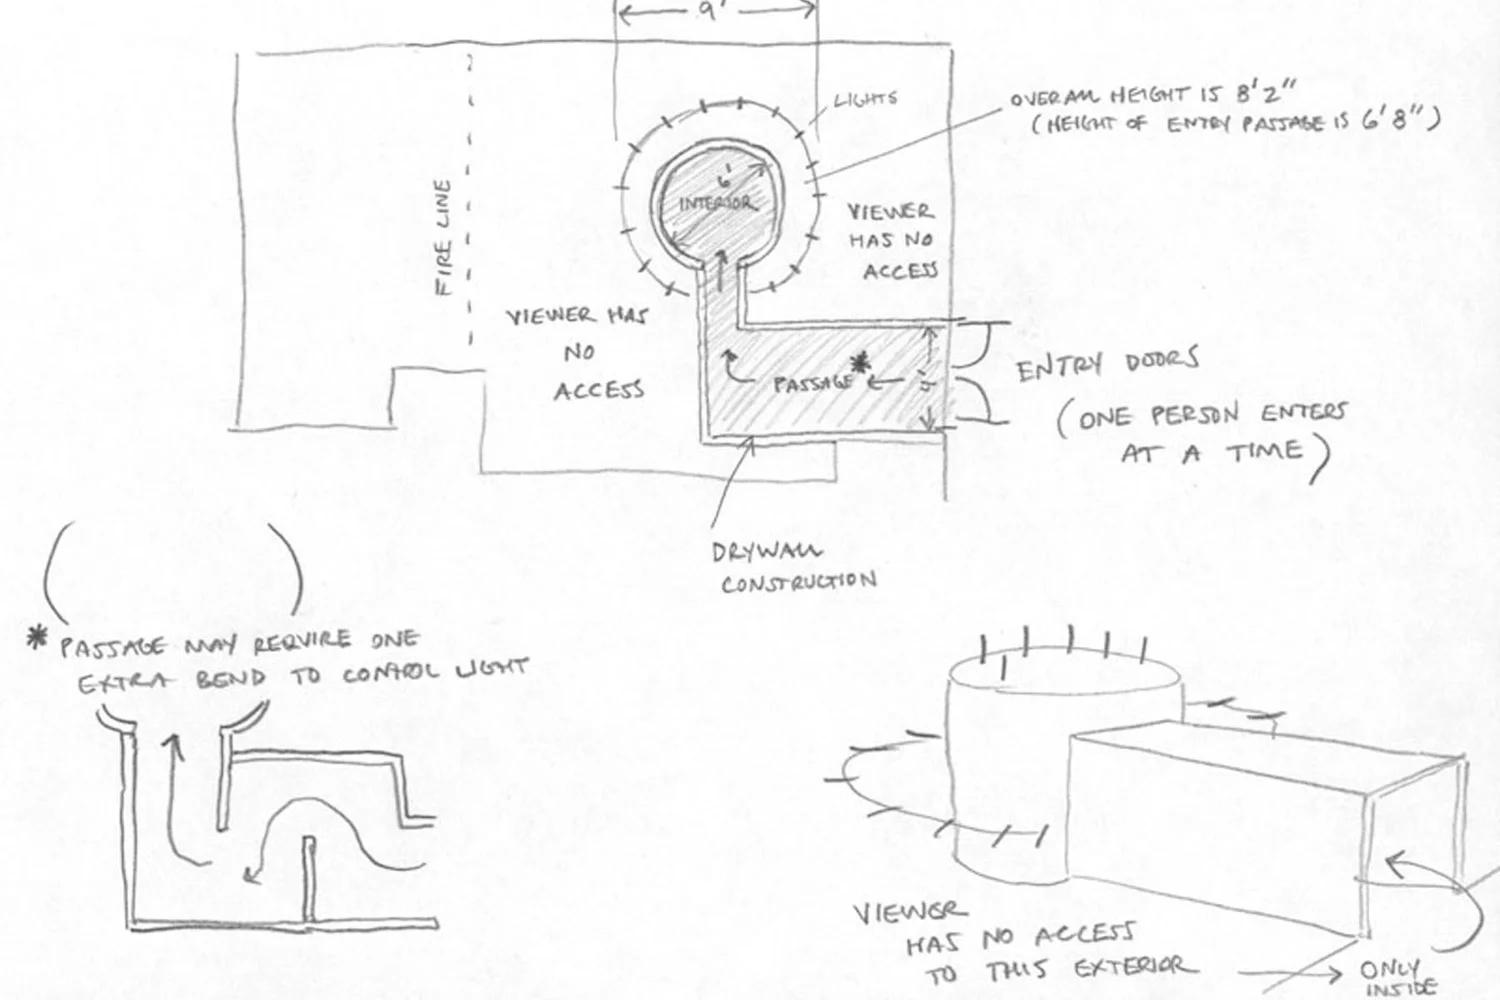 9'
LIGHTS
OVERALL HEIGHT IS 8'2"
(HEIGHT OF ENTRY PASSAGE IS 6'8")
FIRE LINE
6'
INTERIOR
VIEWER
HAS NO
ACCESS
VIEWER HAS
NO
ACCESS
* PASSAGE
ENTRY DOORS
(ONE PERSON ENTERS
AT A TIME)
DRYWALL
CONSTRUCTION
* PASSAGE MAY REQUIRE ONE
EXTRA BEND TO CONTROL LIGHT
VIEWER
HAS NO ACCESS
TO THIS EXTERIOR
ONLY
INSIDE